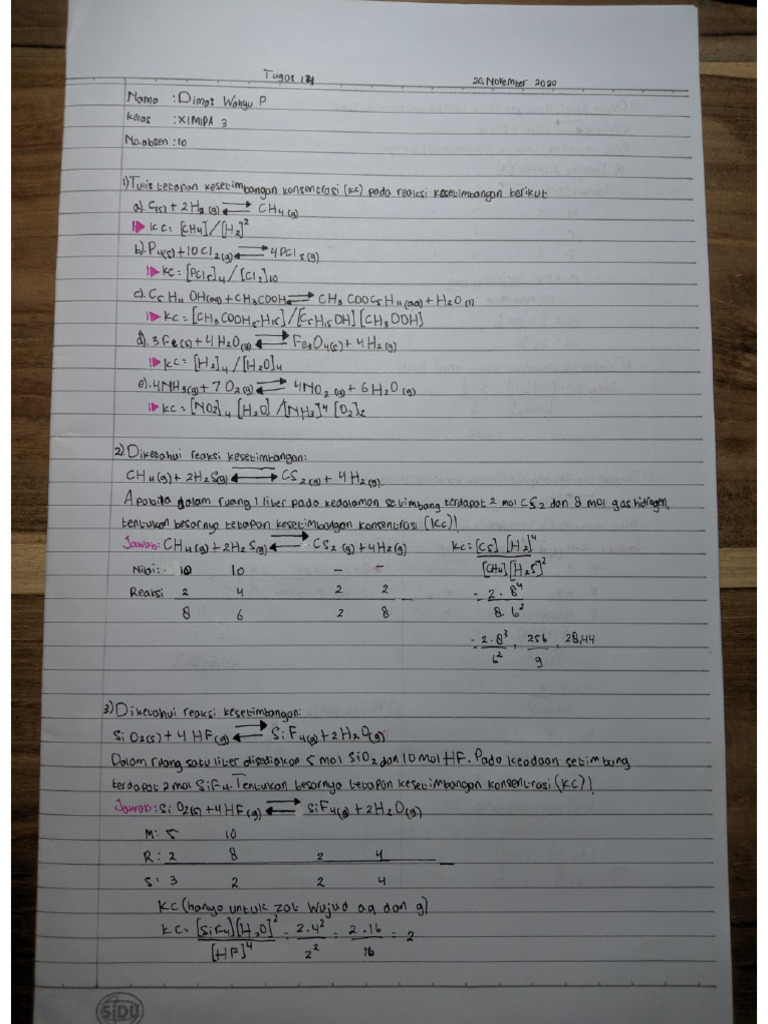 Tugas 1
20 November 2020
Nama : Dimas Wahyu P
Kelas : XI MIPA 3
No.absen : 10
1) Tulis tetapan kesetimbangan konsentrasi (KC) pada reaksi kesetimbangan berikut
a). C(s) + 2H2(g) ⇌ CH4(g)
KC = [CH4] / [H2]²
b). P4(s) + 10Cl2(g) ⇌ 4PCl5(g)
KC = [PCl5]4 / [Cl2]10
c). C5H11OH(aq) + CH3COOH ⇌ CH3COOC5H11(aq) + H2O(l)
KC = [CH3COOH5-H15] / [C5H15OH] [CH3OOH]
d). 3Fe(s) + 4H2O(g) ⇌ Fe3O4(s) + 4H2(g)
KC = [H2]4 / [H2O]4
e). 4NH3(g) + 7O2(g) ⇌ 4NO2(g) + 6H2O(g)
KC = [NO2]4 [H2O] / [NH3]⁴ [O2]2
2) Diketahui reaksi kesetimbangan:
CH4(g) + 2H2S(g) ⇌ CS2(g) + 4H2(g)
Apabila dalam ruang 1 liter pada kedalaman setimbang terdapat 2 mol CS2 dan 8 mol gas hidrogen,
tentukan besarnya tetapan kesetimbangan konsentrasi (KC)!
Jawab: CH4(g) + 2H2S(g) ⇌ CS2(g) + 4H2(g) KC = [CS] [H2]⁴
Nilai: 10 10 - - [CH4][H2S]²
Reaksi 2 4 2 2 - = 2 . 8⁴
8 6 2 8 8. 6²
= 2.8³ = 256 = 28,44
6² 9
3) Diketahui reaksi kesetimbangan:
SiO2(s) + 4HF(g) ⇌ SiF4(g) + 2H2O(g)
Dalam ruang satu liter disediakan 5 mol SiO2 dan 10 mol HF. Pada keadaan setimbang
terdapat 2 mol SiF4. Tentukan besarnya tetapan kesetimbangan konsentrasi (KC)!
Jawab: SiO2(s) + 4HF(g) ⇌ SiF4(g) + 2H2O(g)
M: 5 10
R: 2 8 2 4 -
S: 3 2 2 4
KC (hanya untuk zat wujud aq dan g)
KC = [SiF4][H2O]² = 2.4² = 2.16 = 2
[HF]⁴ 2² 16
SiDU